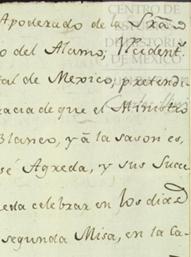 Apoderado de la
o del Alamo,
tal de Mexico, pretendi
racia de que el Ministro
Blanco, y â la sason es,
sé Agreda, y sus Suce
celebrar en los dias
segunda Misa, en la Ca-